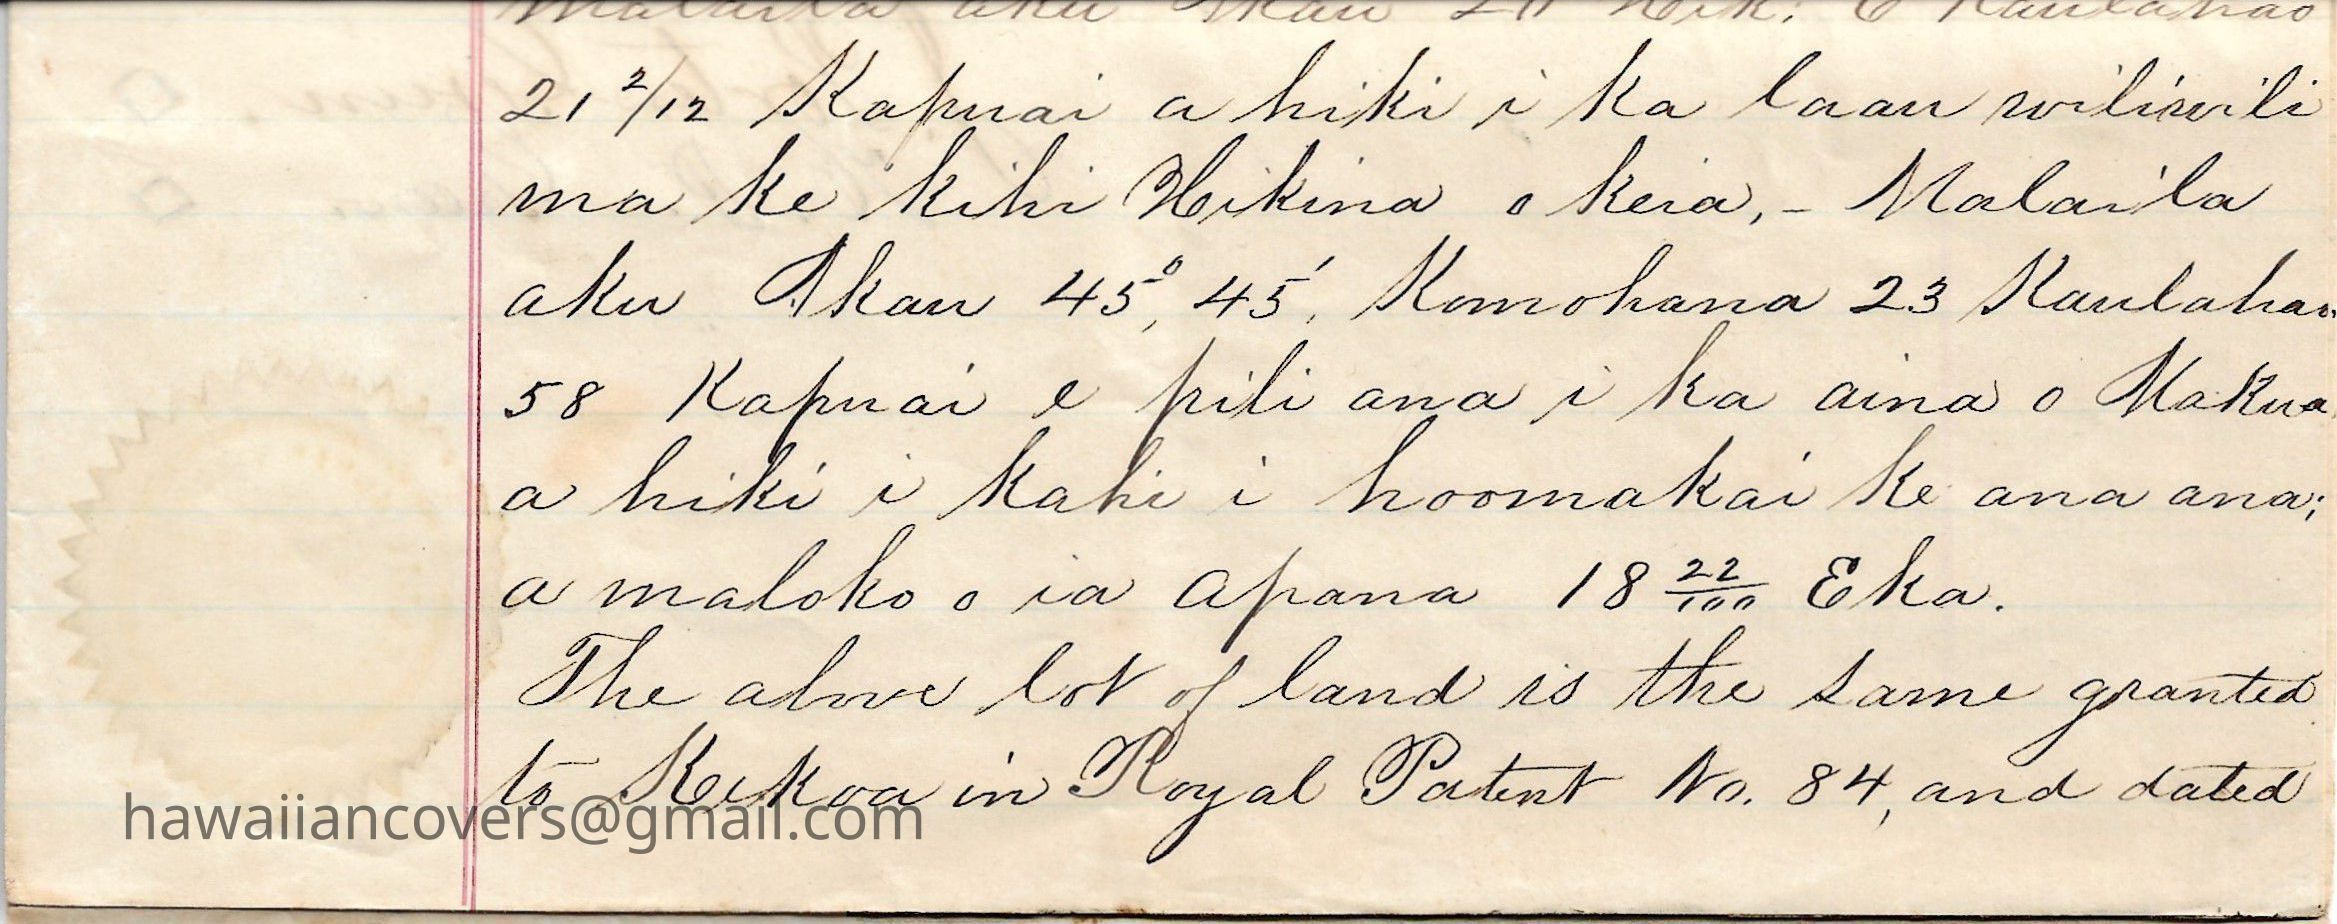 Malaila aku Akau Hik: 6 Kaulahao
21 2/12 Kapuai a hiki i ka laau wiliwili
ma ke kihi Hikina o keia, - Malaila
aku Akau 45°, 45'. Komohana 23 Kaulahao
58 Kapuai e pili ana i ka aina o Makua
a hiki i kahi i hoomakai ke ana ana;
a maloko o ia apana 18 22/100 Eka.
The above lot of land is the same granted
to Kekoa in Royal Patent No. 84, and dated
hawaiiancovers@gmail.com